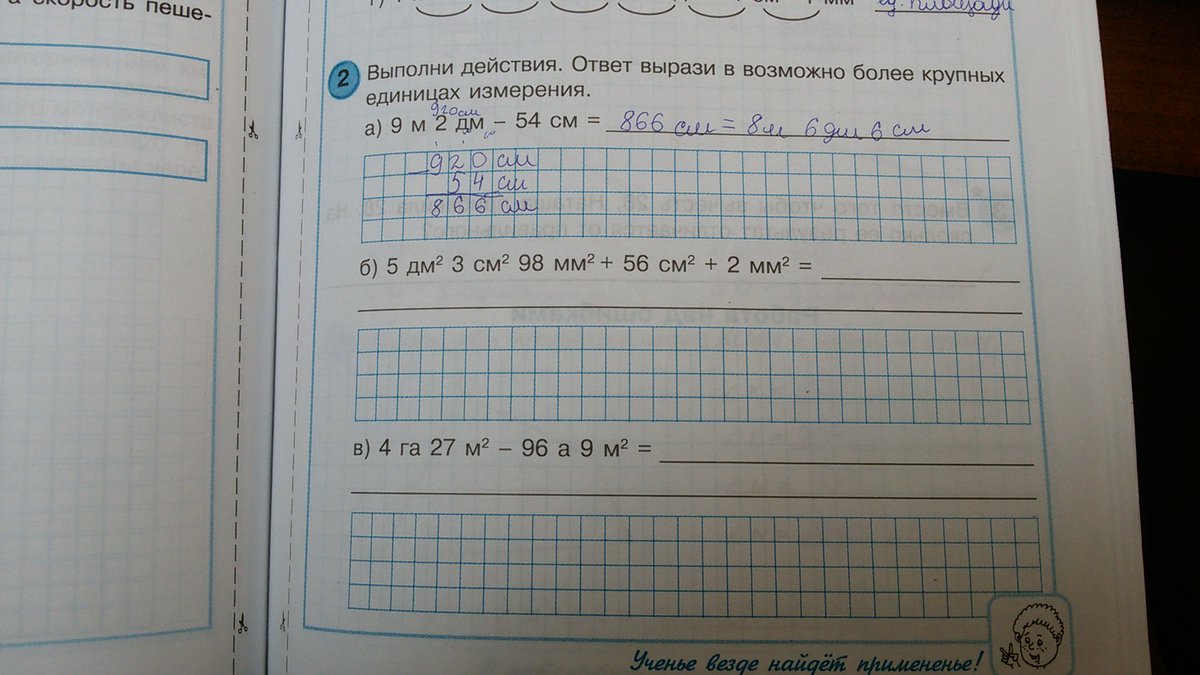 а скорость пеше-
ед. площади
2 Выполни действия. Ответ вырази в возможно более крупных
единицах измерения.
920см
а) 9 м 2 дм – 54 см = 866 см = 8м 6дм 6 см
– 920 см
54 см
866 см
б) 5 дм² 3 см² 98 мм² + 56 см² + 2 мм² =
в) 4 га 27 м² – 96 а 9 м² =
Ученье везде найдёт примененье!